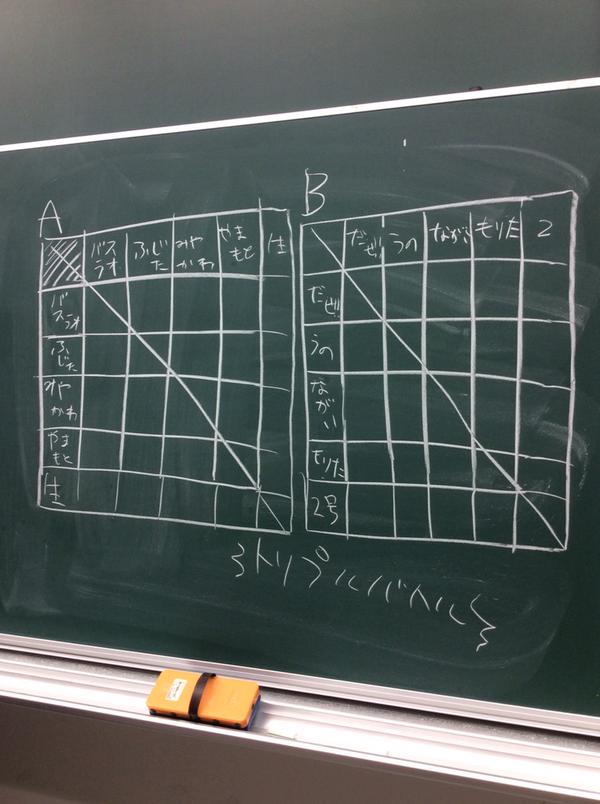 A
バスラオ ふじた みやかわ やまもと 生
バスラオ
ふじた
みやかわ
やまもと
生
B
だぜ!! うの ながい もりた 2
だぜ!!
うの
ながい
もりた
2号
トリプルバトル